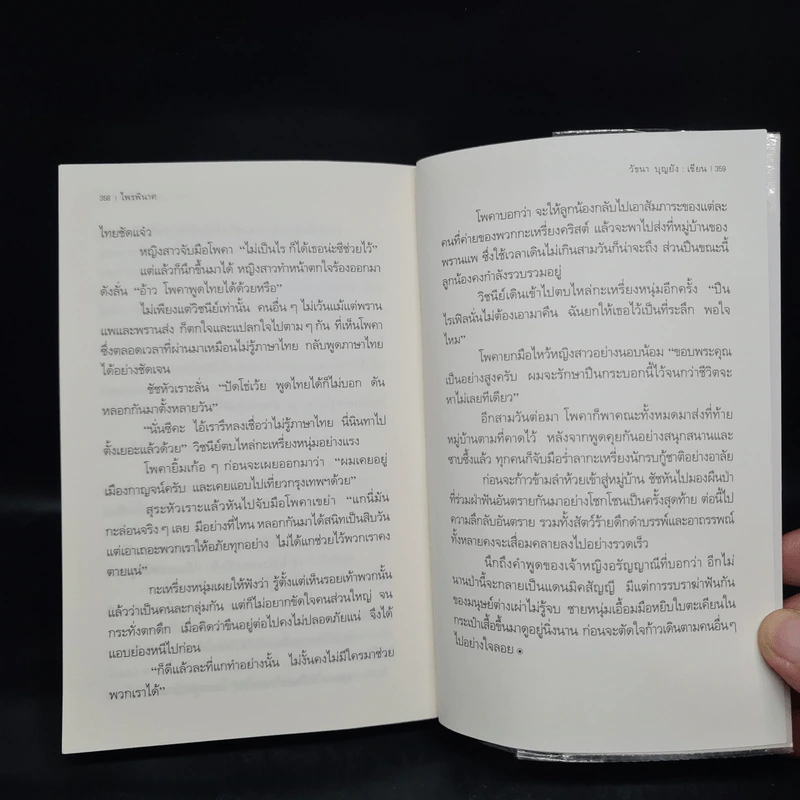 358 | ไพรพินาศ
ไทยชัดแจ๋ว
หญิงสาวจับมือโพคา “ไม่เป็นไร ก็ได้เธอน่ะซีช่วยไว้”
แต่แล้วก็นึกขึ้นมาได้ หญิงสาวทำหน้าตกใจร้องออกมา
ดังลั่น “อ้าว โพคาพูดไทยได้ด้วยหรือ”
ไม่เพียงแต่วิชนีย์เท่านั้น คนอื่น ๆ ไม่เว้นแม้แต่พราน
แพและพรานส่ง ก็ตกใจและแปลกใจไปตาม ๆ กัน ที่เห็นโพคา
ซึ่งตลอดเวลาที่ผ่านมาเหมือนไม่รู้ภาษาไทย กลับพูดภาษาไทย
ได้อย่างชัดเจน
ชัชหัวเราะลั่น “ปัดโธ่เว้ย พูดไทยได้ก็ไม่บอก ดัน
หลอกกันมาตั้งหลายวัน”
“นั่นซีคะ ไอ้เรารึหลงเชื่อว่าไม่รู้ภาษาไทย นี่นินทาไป
ตั้งเยอะแล้วด้วย” วิชนีย์ตบไหล่กะเหรี่ยงหนุ่มอย่างแรง
โพคายิ้มเก้อ ๆ ก่อนจะเผยออกมาว่า “ผมเคยอยู่
เมืองกาญจน์ครับ และเคยแอบไปเที่ยวกรุงเทพฯด้วย”
สุระหัวเราะแล้วหันไปจับมือโพคาเขย่า “แกนี่มัน
กะล่อนจริง ๆ เลย มีอย่างที่ไหน หลอกกันมาได้สนิทเป็นสิบวัน
แต่เอาเถอะพวกเราให้อภัยทุกอย่าง ไม่ได้แกช่วยไว้พวกเราคง
ตายแน่”
กะเหรี่ยงหนุ่มเผยให้ฟังว่า รู้ตั้งแต่เห็นรอยเท้าพวกนั้น
แล้วว่าเป็นคนละกลุ่มกัน แต่ก็ไม่อยากขัดใจคนส่วนใหญ่ จน
กระทั่งตกดึก เมื่อคิดว่าขืนอยู่ต่อไปคงไม่ปลอดภัยแน่ จึงได้
แอบย่องหนีไปก่อน
“ก็ดีแล้วละที่แกทำอย่างนั้น ไม่งั้นคงไม่มีใครมาช่วย
พวกเราได้”
วัธนา บุญยัง : เขียน | 359
โพคาบอกว่า จะให้ลูกน้องกลับไปเอาสัมภาระของแต่ละ
คนที่ค่ายของพวกกะเหรี่ยงคริสต์ แล้วจะพาไปส่งที่หมู่บ้านของ
พรานแพ ซึ่งใช้เวลาเดินไม่เกินสามวันก็น่าจะถึง ส่วนปืนขณะนี้
ลูกน้องคงกำลังรวบรวมอยู่
วิชนีย์เดินเข้าไปตบไหล่กะเหรี่ยงหนุ่มอีกครั้ง “ปืน
ไรเฟิลนั่นไม่ต้องเอามาคืน ฉันยกให้เธอไว้เป็นที่ระลึก พอใจ
ไหม”
โพคายกมือไหว้หญิงสาวอย่างนอบน้อม “ขอบพระคุณ
เป็นอย่างสูงครับ ผมจะรักษาปืนกระบอกนี้ไว้จนกว่าชีวิตจะ
หาไม่เลยทีเดียว”
อีกสามวันต่อมา โพคาก็พาคณะทั้งหมดมาส่งที่ท้าย
หมู่บ้านตามที่คาดไว้ หลังจากพูดคุยกันอย่างสนุกสนานและ
ซาบซึ้งแล้ว ทุกคนก็จับมือร่ำลากะเหรี่ยงนักรบกู้ชาติอย่างอาลัย
ก่อนจะก้าวข้ามลำห้วยเข้าสู่หมู่บ้าน ชัชหันไปมองผืนป่า
ที่ร่วมฝ่าฟันอันตรายกันมาอย่างโชกโชนเป็นครั้งสุดท้าย ต่อนี้ไป
ความลึกลับอันตราย รวมทั้งสัตว์ร้ายดึกดำบรรพ์และอาถรรพณ์
ทั้งหลายคงจะเสื่อมคลายลงไปอย่างรวดเร็ว
นึกถึงคำพูดของเจ้าหญิงอรัญญาณีที่บอกว่า อีกไม่
นานป่านี้จะกลายเป็นแดนมิคสัญญี มีแต่การบราฆ่าฟันกัน
ของมนุษย์ต่างเผ่าไม่รู้จบ ชายหนุ่มเอื้อมมือหยิบใบตะเคียนใน
กระเป๋าเสื้อขึ้นมาดูอยู่นิ่งนาน ก่อนจะตัดใจก้าวเดินตามคนอื่น ๆ
ไปอย่างใจลอย